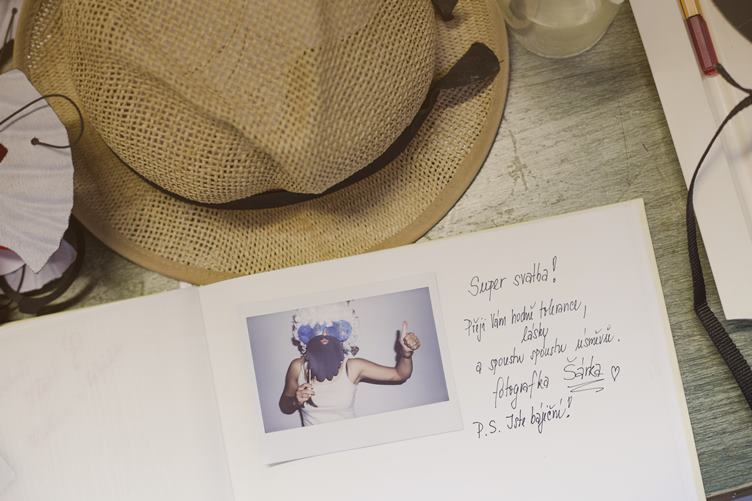 Super svatba!
Přeji Vám hodně tolerance,
lásky
a spoustu spoustu úsměvů.
fotografka Šárka ♡
P.S. Jste báječní!